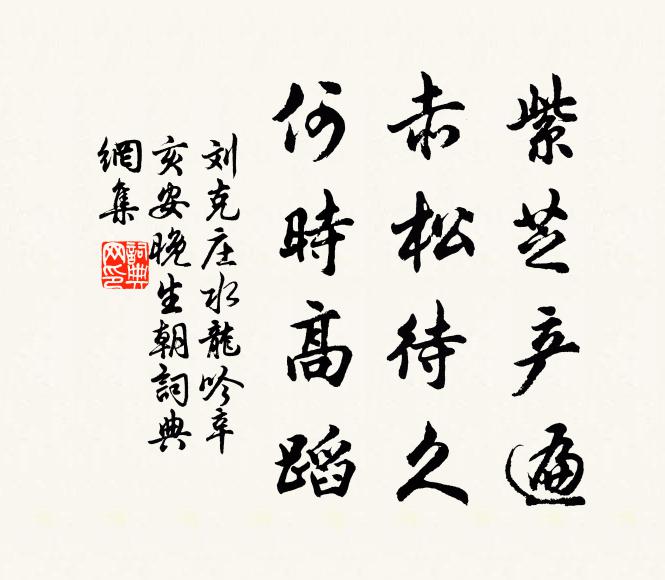 紫芝产遍
赤松待久
何時高蹈
刘克庄水龍吟辛
亥安晚生朝詞典
網集
詞典網印